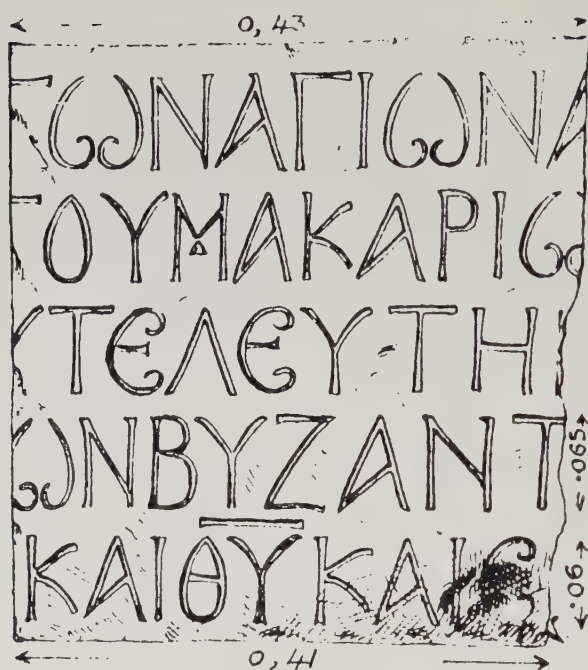 0,43
ΤΩΝΑΓΙΩΝΑ
ΤΟΥΜΑΚΑΡΙΩ
ΥΤΕΛΕΥΤΗ
ΩΝΒΥΖΑΝΤ
·065
ΚΑΙΘ̅Υ̅ΚΑΙϹ
·06
0,41